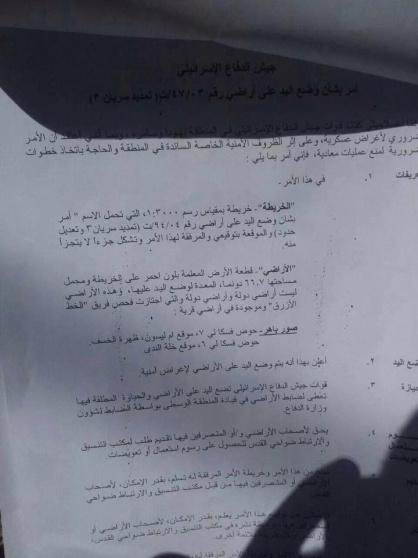 جيش الدفاع الإسرائيلي
أمر بشأن وضع اليد على أراضي رقم ٤٧/٠٣/ت (تمديد سريان ٣)
قوات جيش الدفاع الإسرائيلي في المنطقة يهودا وسامره، وبما أنني أعتقد أن الأمر
ضروري لأغراض عسكرية، وعلى إثر الظروف الأمنية الخاصة السائدة في المنطقة والحاجة باتخاذ خطوات
ضرورية لمنع عمليات معادية، فإني أمر بما يلي :
عريفات ١. في هذا الأمر-
"الخريطة"- خريطة بمقياس رسم ١:٣٠٠٠، التي تحمل الاسم " أمر
بشأن وضع اليد على أراضي رقم ٩٤/٠٤/ت (تمديد سريان ٣ وتعديل
حدود) والموقعة بتوقيعي والمرفقة لهذا الأمر وتشكل جزءاً لا يتجزأ
منه.
"الأراضي"- قطعة الأرض المعلمة بلون احمر على الخريطة ومجمل
مساحتها ٦٦.٧ دونما، المعدة لوضع اليد عليها، وهذه الأراضي
ليست أراضي دولة وأراضي دولة والتي اجتازت فحص فريق "الخط
الأزرق" وموجودة في أراضي قرية :
صور باهر- حوض فسكا لي ٧، موقع ام ليسون، ظهرة الخسف.
حوض فسكا لي ٦، موقع خلة الندى
ضع اليد ٢. أعلن بهذا أنه يتم وضع اليد على الأراضي لإغراض أمنية.
يازة ٣. قوات جيش الدفاع الإسرائيلي تضع اليد على الأراضي والحيازة المطلقة فيها
تعطى لضابط الأراضي في قيادة المنطقة الوسطى بواسطة الضابط لشؤون
وزارة الدفاع.
٤. يحق لأصحاب الأراضي و/او المتصرفين فيها تقديم طلب لمكتب التنسيق
والارتباط ضواحي القدس للحصول على رسوم استعمال أو تعويضات.
من هذا الأمر وخريطة الأمر المرفقة له تسلم، بقدر الإمكان، لأصحاب
الأراضي أو المتصرفين فيها من قبل مكتب التنسيق والارتباط ضواحي
هذا الأمر يعلم، بقدر الإمكان، لأصحاب الأراضي أو
نشره في مكتب التنسيق والارتباط ضواحي القدس،